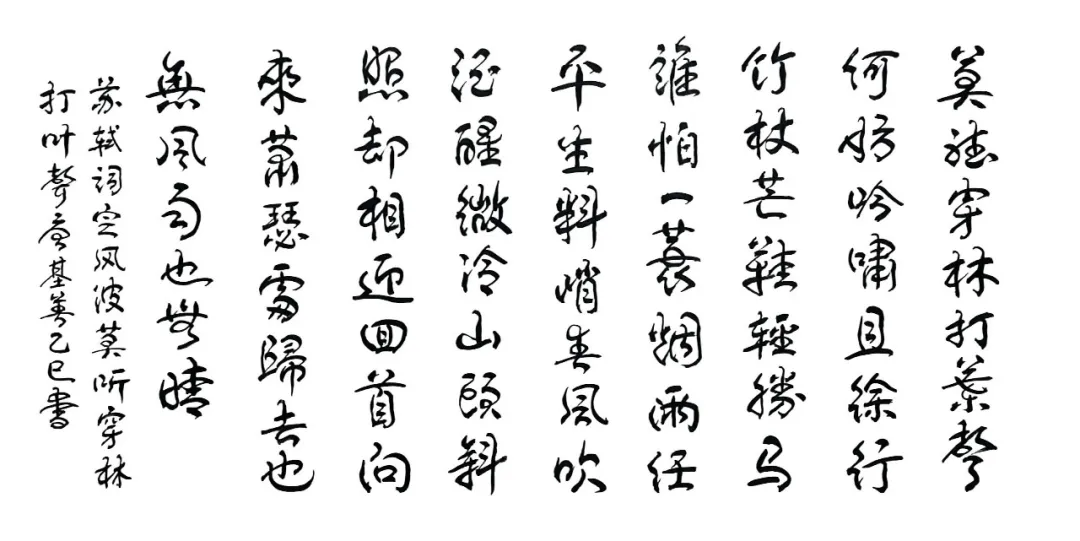 莫聽穿林打葉聲
何妨吟嘯且徐行
竹杖芒鞋輕勝马
誰怕一蓑烟雨任
平生料峭春風吹
酒醒微冷山頭斜
照却相迎回首向
來蕭瑟處歸去也
無風雨也無晴
苏轼词定风波莫听穿林
打叶聲基善乙巳書